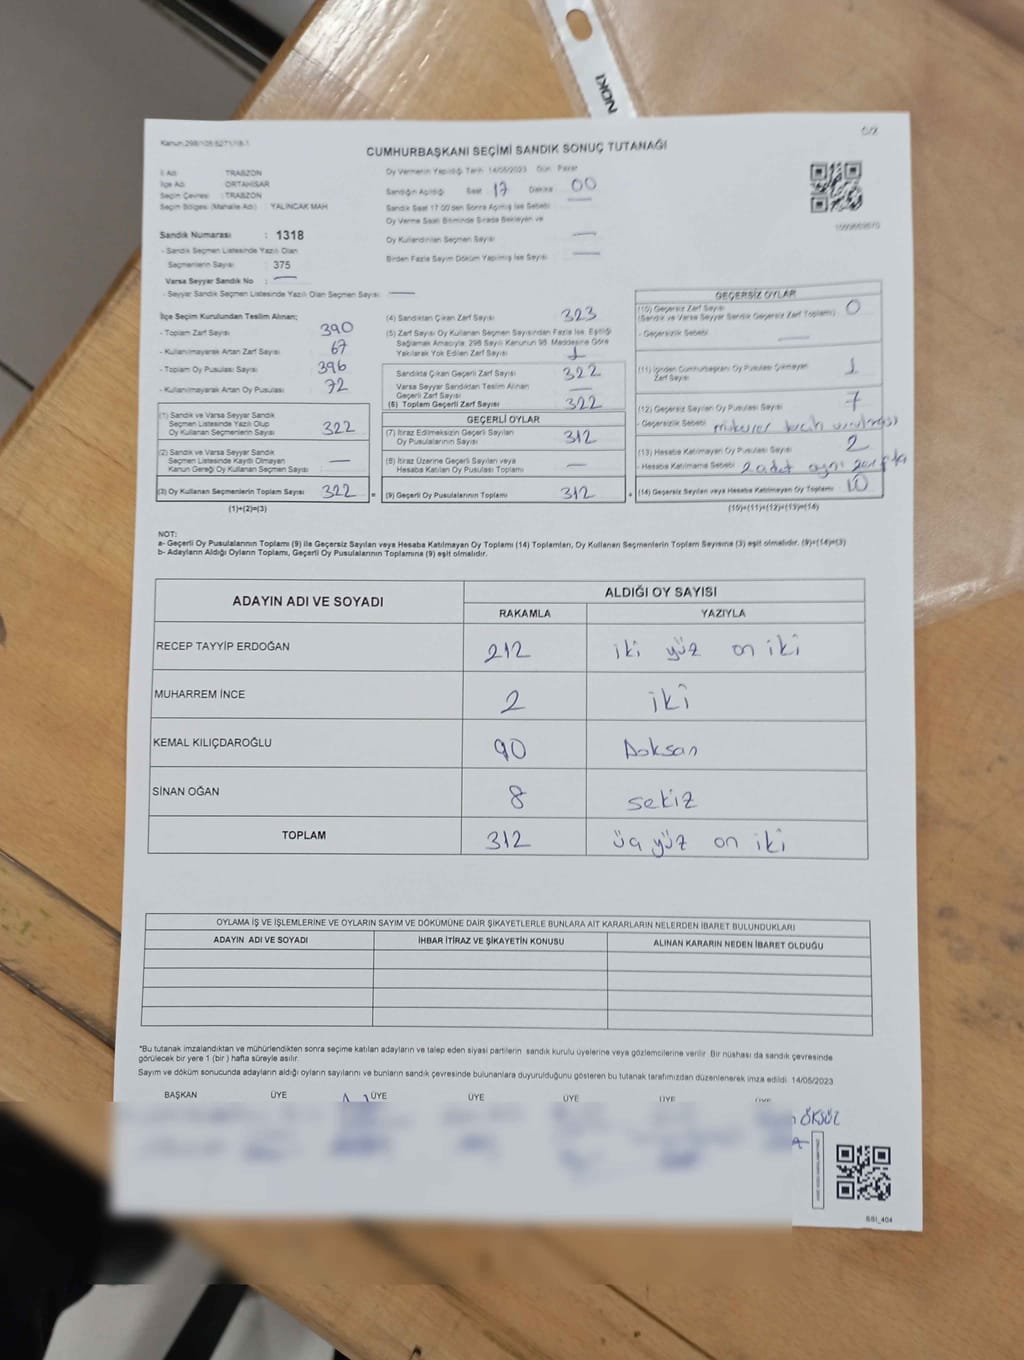 NOKI
Kanun:298/105 6271/18-1
CUMHURBAŞKANI SEÇİMİ SANDIK SONUÇ TUTANAĞI
İl Adı : TRABZON
İlçe Adı : ORTAHİSAR
Seçim Çevresi : TRABZON
Seçim Bölgesi (Mahalle Adı) : YALINCAK MAH
Sandık Numarası : 1318
- Sandık Seçmen Listesinde Yazılı Olan
Seçmenlerin Sayısı : 375
Varsa Seyyar Sandık No : —
- Seyyar Sandık Seçmen Listesinde Yazılı Olan Seçmen Sayısı : —
Oy Vermenin Yapıldığı Tarih 14/05/2023 Gün Pazar
Sandığın Açıldığı Saat 17 Dakika 00
Sandık Saat 17.00'den Sonra Açılmış İse Sebebi
Oy Verme Saati Bitiminde Sırada Bekleyen ve
Oy Kullandırılan Seçmen Sayısı —
Birden Fazla Sayım Döküm Yapılmış İse Sayısı —
İlçe Seçim Kurulundan Teslim Alınan;
- Toplam Zarf Sayısı 390
- Kullanılmayarak Artan Zarf Sayısı 67
- Toplam Oy Pusulası Sayısı 396
- Kullanılmayarak Artan Oy Pusulası 72
(1) Sandık ve Varsa Seyyar Sandık
Seçmen Listesinde Yazılı Olup
Oy Kullanan Seçmenlerin Sayısı 322
(2) Sandık ve Varsa Seyyar Sandık
Seçmen Listesinde Kayıtlı Olmayan
Kanun Gereği Oy Kullanan Seçmen Sayısı —
(3) Oy Kullanan Seçmenlerin Toplam Sayısı 322 =
(1)+(2)=(3)
(4) Sandıktan Çıkan Zarf Sayısı 323
(5) Zarf Sayısı Oy Kullanan Seçmen Sayısından Fazla İse, Eşitliği
Sağlamak Amacıyla; 298 Sayılı Kanunun 98. Maddesine Göre
Yakılarak Yok Edilen Zarf Sayısı 1
Sandıkta Çıkan Geçerli Zarf Sayısı 322
Varsa Seyyar Sandıktan Teslim Alınan
Geçerli Zarf Sayısı —
(6) Toplam Geçerli Zarf Sayısı 322
GEÇERLİ OYLAR
(7) İtiraz Edilmeksizin Geçerli Sayılan
Oy Pusulalarının Sayısı 312
(8) İtiraz Üzerine Geçerli Sayılan veya
Hesaba Katılan Oy Pusulası Toplamı —
(9) Geçerli Oy Pusulalarının Toplamı 312 +
GEÇERSİZ OYLAR
(10) Geçersiz Zarf Sayısı 0
(Sandık ve Varsa Seyyar Sandık Geçersiz Zarf Toplamı)
- Geçersizlik Sebebi —
(11) İçinden Cumhurbaşkanı Oy Pusulası Çıkmayan
Zarf Sayısı 1
(12) Geçersiz Sayılan Oy Pusulası Sayısı 7
- Geçersizlik Sebebi mükerrer
(13) Hesaba Katılmayan Oy Pusulası Sayısı 2
- Hesaba Katılmama Sebebi 2 adet aynı zarfta
(14) Geçersiz Sayılan veya Hesaba Katılmayan Oy Toplamı 10
(10)+(11)+(12)+(13)=(14)
NOT:
a- Geçerli Oy Pusulalarının Toplamı (9) ile Geçersiz Sayılan veya Hesaba Katılmayan Oy Toplamı (14) Toplamları, Oy Kullanan Seçmenlerin Toplam Sayısına (3) eşit olmalıdır. (9)+(14)=(3)
b- Adayların Aldığı Oyların Toplamı, Geçerli Oy Pusulalarının Toplamına (9) eşit olmalıdır.
ADAYIN ADI VE SOYADI ALDIĞI OY SAYISI
RAKAMLA YAZIYLA
RECEP TAYYİP ERDOĞAN 212 iki yüz on iki
MUHARREM İNCE 2 iki
KEMAL KILIÇDAROĞLU 90 Doksan
SİNAN OĞAN 8 sekiz
TOPLAM 312 üç yüz on iki
OYLAMA İŞ VE İŞLEMLERİNE VE OYLARIN SAYIM VE DÖKÜMÜNE DAİR ŞİKAYETLERLE BUNLARA AİT KARARLARIN NELERDEN İBARET BULUNDUKLARI
ADAYIN ADI VE SOYADI İHBAR İTİRAZ VE ŞİKAYETİN KONUSU ALINAN KARARIN NEDEN İBARET OLDUĞU
*Bu tutanak imzalandıktan ve mühürlendikten sonra seçime katılan adayların ve talep eden siyasi partilerin sandık kurulu üyelerine veya gözlemcilerine verilir. Bir nüshası da sandık çevresinde
görülecek bir yere 1 (bir ) hafta süreyle asılır.
Sayım ve döküm sonucunda adayların aldığı oyların sayılarını ve bunların sandık çevresinde bulunanlara duyurulduğunu gösteren bu tutanak tarafımızdan düzenlenerek imza edildi. 14/05/2023
BAŞKAN ÜYE ÜYE ÜYE ÜYE ÜYE ÜYE
ÖKSÜZ